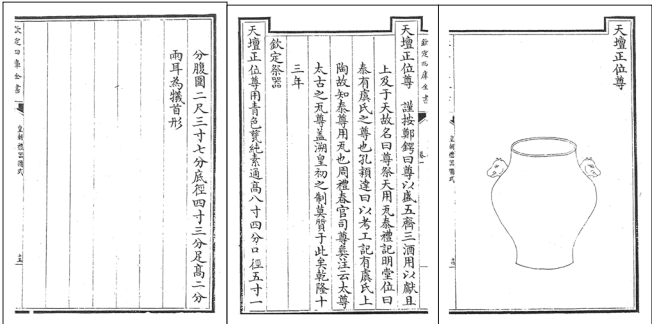 天壇正位尊
欽定四庫全書
天壇正位尊 謹按鄭鍔曰尊以盛五齊三酒用以獻且
上及于天故名曰尊祭天用瓦泰禮記明堂位曰
泰有虞氏之尊也孔穎達曰以考工記有虞氏上
陶故知泰尊用瓦也周禮春官司尊彝注云太尊
太古之瓦尊蓋溯皇初之制莫質于此矣乾隆十
三年
欽定祭器
天壇正位尊用青色甆純素通高八寸四分口徑五寸一
分腹圍二尺三寸七分底徑四寸三分足高二分
兩耳為犧首形
欽定四庫全書
皇朝禮器圖式